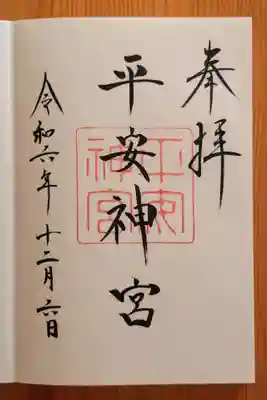 奉拝
平安神宮
令和六年 十二月六日
平安神宮